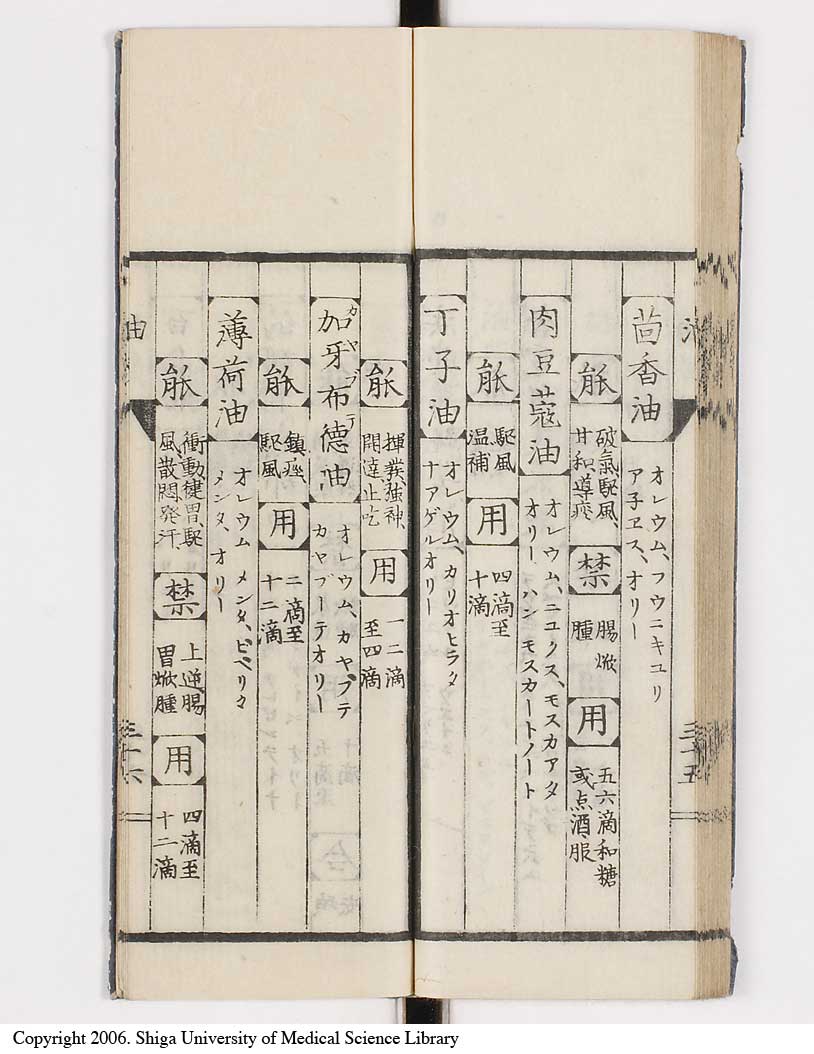 茴香油
オレウム、フウニキユリ
ア子ヱス、オリー
能
破氣駆風、
甘和導痰
禁
腸焮
腫
用
五六滴和糖
或点酒服
三十五
肉豆蔲油
オレウム、ニユクス、モスカアタ
オリー ハン モスカートノート
能
駆風
温補
用
四滴至
十滴
丁子油
オレウム、カリオヒラタ
ナアゲルオリー
能
揮発強神、
開達、止吃
用
一二滴
至四滴
加牙布德油
カヤプテ
オレウム、カヤ、プテ
カヤプーテオリー
能
鎮痙、
駆風
用
二滴至
十二滴
薄荷油
オレウム メンタ、ピペリタ
メンタ、オリー
能
衝動健胃、駆
風、散悶、発汗、
禁
上逆腸
胃焮腫
用
四滴至
十二滴
油
三十六
Copyright 2006. Shiga University of Medical Science Library